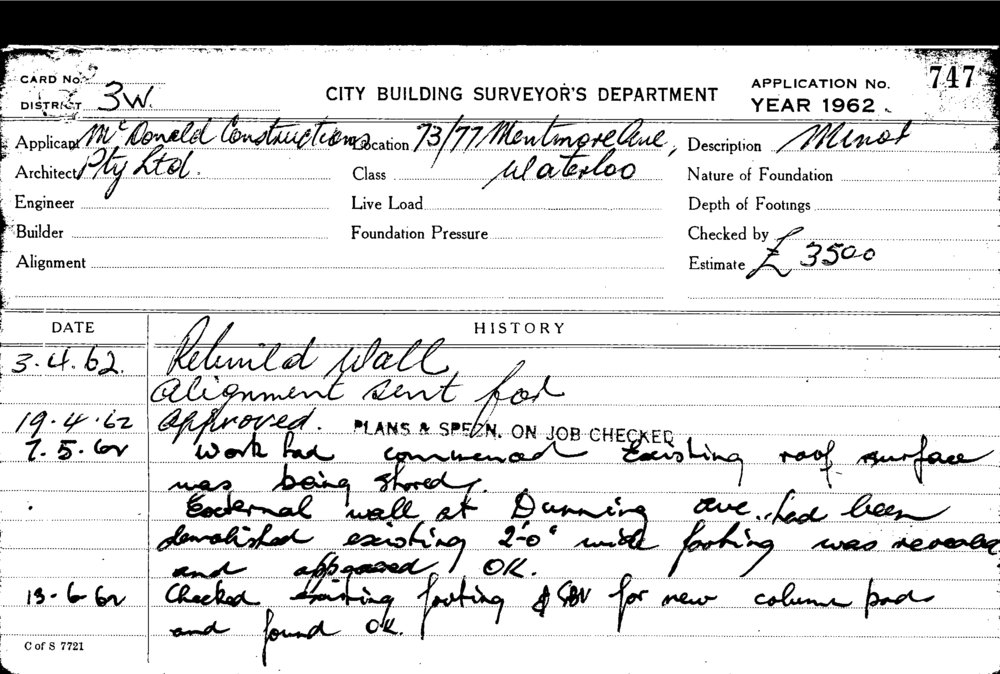 CARD No.
DISTRICT 3W.
CITY BUILDING SURVEYOR'S DEPARTMENT
APPLICATION No. 747
YEAR 1962
Applicant McDonald Constructions Location 73/77 Mentmore Ave, Description Minor
Architect Pty Ltd. Class Waterloo Nature of Foundation
Engineer Live Load Depth of Footings
Builder Foundation Pressure Checked by
Alignment Estimate £ 3500
DATE HISTORY
3.4.62. Rebuild Wall
Alignment sent for
19.4.62 approved. PLANS & SPECN. ON JOB CHECKED
7.5.62 Work had commenced Existing roof surface
was being shored.
External wall at Dunning ave. had been
demolished existing 2'-0" wide footing was revealed
and appeared OK.
13-6-62 Checked existing footing & for new column pads
and found OK.
C of S 7721